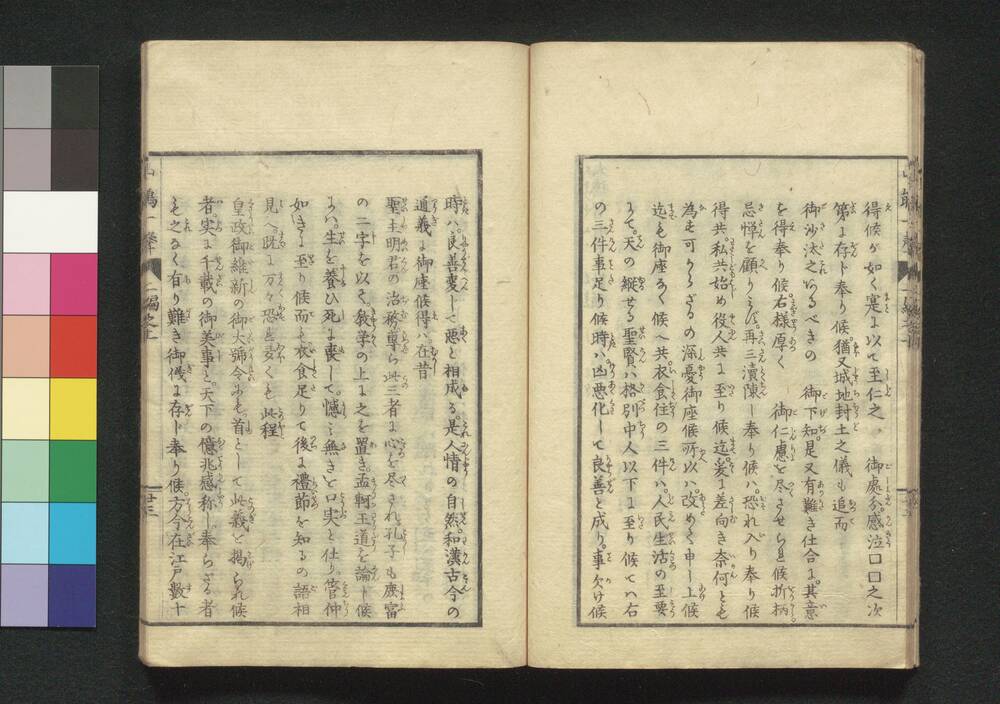 得候が如く寔に以て至仁之。　御處分。感泣口口之次
第に存ト奉り候。猶又城地封土之儀も追而
御沙汰之あるべきの　御下知。是又有難き仕合に其意
を得奉り候。右様厚く　御仁慮を尽させられ候折柄。
忌憚を顧りミず。再三瀆陳し奉り候ハ。恐れ入り奉り候
得共。私共始め役人共に至り候迄。爰に差向き奈何とも
為す可からざるの深憂御座候所以ハ。改めて申し上候
迄も御座なく候へ共。衣食住の三件ハ。人民生活の至要
にて。天の縦せる聖賢ハ格別中人以下に至り候てハ右
の三件事足り候時ハ凶悪化して良善と成り。事欠け候
時ハ。良善変して悪と相成る。是人情の自然。和漢古今の
道義に御座候得ハ。在昔
聖主明君の治務専ら此三者に心を尽され。孔子も庶富
の二字を以て。教学の上に之を置き。孟軻王道を論し候
にハ。生を養ひ死に喪して。憾ミ無きを口実と仕り。管仲
如きに至り候而も。衣食足りて後に禮節を知るの語相
見へ。既に万々恐れ多くも此程
皇政御維新の御大號令にも。首として此義を掲られ候
者。実に千載の御美事と。天下の億兆感称し奉らざる者
も之なく有り難き御儀に存し奉り候。方今在江戸數十
二編之十
廿三